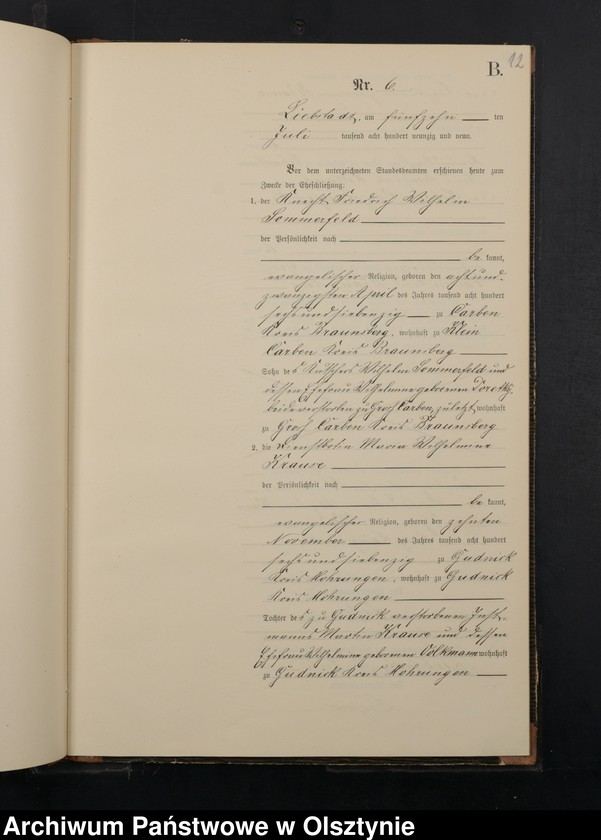 B.
12
Nr. 6.
Liebstadt, am fünfzehn ten
Juli tausend acht hundert neunzig und neun.
Vor dem unterzeichneten Standesbeamten erschienen heute zum
Zwecke der Eheschließung:
1. der Knecht Friedrich Wilhelm
Sommerfeld
der Persönlichkeit nach
be kannt,
evangelischer Religion, geboren den achtund-
zwanzigsten April des Jahres tausend acht hundert
sechsundsiebenzig zu Carben
Kreis Braunsberg, wohnhaft zu Klein
Carben Kreis Braunsberg
Sohn des Kutschers Wilhelm Sommerfeld und
dessen Ehefrau Wilhelmine geborenen
beide verstorben zu Groß Carben, zuletzt wohnhaft
zu Groß Carben Kreis Braunsberg
2. die Dienstbotin Maria Wilhelmine
Krause
der Persönlichkeit nach
be kannt,
evangelischer Religion, geboren den zehnten
November des Jahres tausend acht hundert
sechsundsiebenzig zu Gudnick
Kreis Mohrungen, wohnhaft zu Gudnick
Kreis Mohrungen
Tochter des zu Gudnick verstorbenen Inst-
manns Martin Krause und dessen
Ehefrau Wilhelmine geborenen Volkmann wohnhaft
zu Gudnick Kreis Mohrungen
Archiwum Państwowe w Olsztynie